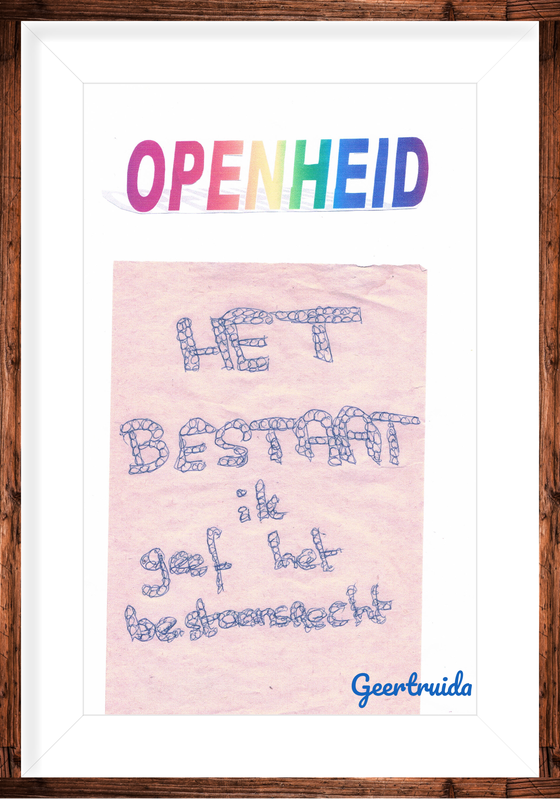 OPENHEID
HET
BESTAAT
ik
geef het
bestaansrecht
Geertruida